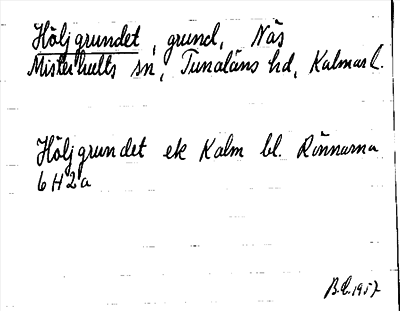 Höljgrundet, grund, Näs
Misterhults sn, Tunaläns hd, Kalmar l.
Höljgrundet ek Kalm bl. Rönnarna
6H2a
1957